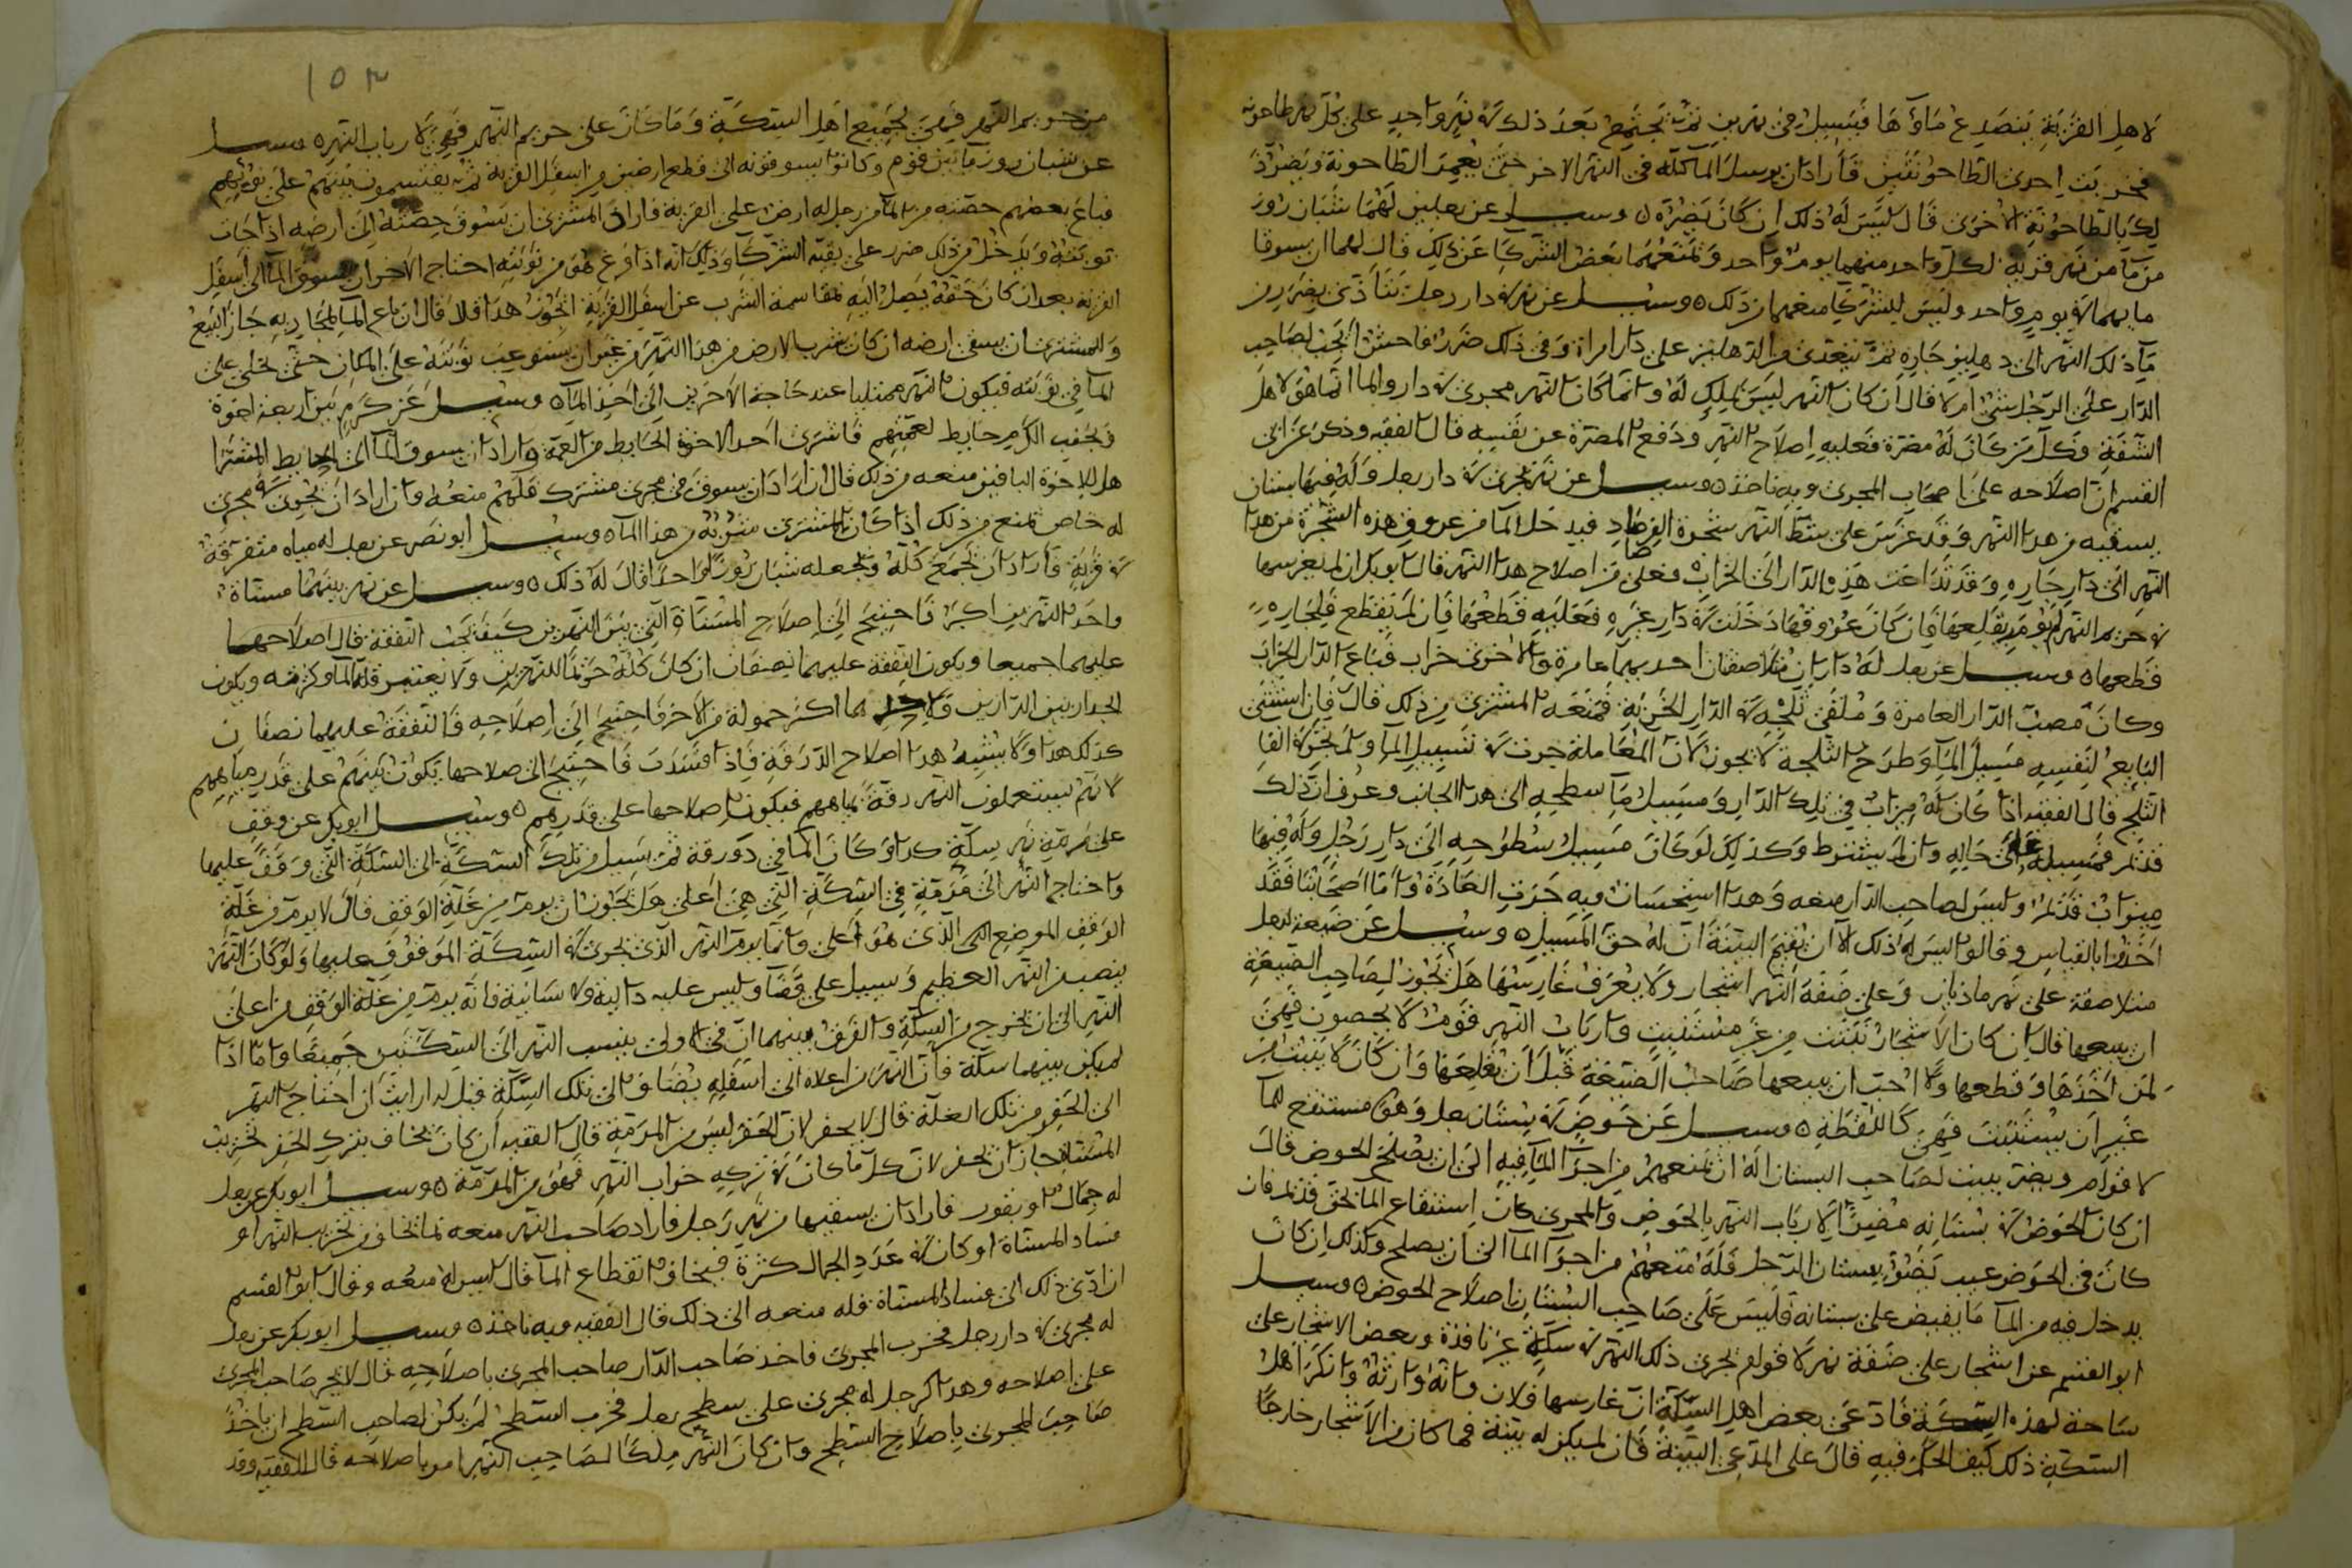 لاهل القرية يتصدع ماؤها فيسيل في نهرين ثم يجتمع بعد ذلك في نهر واحد على كل نهر طاحونة
فخربت احدى الطاحونتين فأراد ان يرسل الماء كله في النهر الاخر حتى يعمر الطاحونة ويضر ذ
لك بالطاحونة الاخرى قال ليس له ذلك ان كان يضره ٥ وسئل عن رجلين لهما شبان روز
من ماء من نهر قرية لكل واحد منهما يوم واحد ويمنعهما بعض الشركا عن ذلك قال لهما ان يسوقا
ماءهما في يوم واحد وليس للشركا منعهما من ذلك ٥ وسئل عن نهر في دار رجل
ماء ذلك النهر الى دهليز جاره ثم يتعدى من الدهليز على دار امراة وفي ذلك ضرر فاحش ايجب لصاحب
الدار على الرجل شي ام لا قال ان كان النهر ليس بملك له وانما كان النهر مجرى في دار والماء انما هو لاهل
الشفة فكل من كان له مضرة فعليه اصلاح النهر ودفع المضرة عن نفسه قال الفقيه وذكر عن ابي
القسم ان اصلاحه على اصحاب المجرى وبه ناخذ ٥ وسئل عن نهر يجري في دار رجل وله فيها بستان
يسقيه من هذا النهر وقد غرس على شط النهر شجرة الفرصاد فيدخل الماء من عروق هذه الشجرة من هذا
النهر الى دار جاره وقد تداعت هذه الدار الى الخراب فعلى من اصلاح هذا النهر قال ابو بكر ان لم يغرسها
في حريم النهر لم يؤمر بقلعها فان كان عروقها دخلت في دار غيره فعليه قطعها فان لم يقطع فلجاره
قطعها ٥ وسئل عن رجل له داران متلاصقتان احديهما عامرة والاخرى خراب فباع الدار الخراب
وكان مصب الدار العامرة وملقى ثلجه في الدار الخربة فمنعه المشتري من ذلك قال فان استثنى
البايع لنفسه مسيل الماء وطرح الثلج لا يجوز لان المعاملة جرت في تسييل الماء ولم يجر في القا
الثلج قال الفقيه اذا كان له ميزاب في تلك الدار ومسيل ماء سطحه الى هذا الجانب وعرف ان ذلك
قديم فمسيله على حاله وان لم يشترط وكذلك لو كان مسيل سطوحه الى دار رجل وله فيها
ميزاب قديم وليس لصاحب الدار منعه وهذا استحسان وبه جرت العادة واما اصحابنا فقد
اخذوا بالقياس وقالوا ليس له ذلك الا ان يقيم البينة ان له حق المسيل ٥ وسئل عن ضيعة لرجل
متلاصقة على نهر ماذيان وعلى ضفة النهر اشجار ولا يعرف غارسها هل يجوز لصاحب الضيعة
ان يبيعها قال ان كان الاشجار نبتت من غير مستنبت وارباب النهر قوم لا يحصون فهي
لمن اخذها وقطعها ولا احب ان يبيعها صاحب الضيعة قبل ان يقلعها وان كان لا ينبت من
غير ان يستنبت فهي كاللقطة ٥ وسئل عن حوض في بستان رجل وهو مستنقع الماء
لاقوام ويضر ببيت لصاحب البستان اله ان يمنعهم من اجراء الماء فيه الى ان يصلح الحوض قال
ان كان الحوض في بستانه مضرا لارباب النهر بالحوض والمجرى كان استنقاع الماء بحق قديم فان
كان في الحوض عيب يضر ببستان الرجل فله منعهم من اجراء الماء الى ان يصلح وكذلك ان كان
يدخل فيه من الماء ما يفيض على بستانه فليس على صاحب البستان اصلاح الحوض ٥ وسئل
ابو القسم عن اشجار على ضفة نهر لاقوام يجري ذلك النهر في سكة غير نافذة وبعض الاشجار على
ساحة لهذه السكة فادعى بعض اهل السكة ان غارسها فلان وانه وارثه وانكر اهل
السكة ذلك كيف الحكم فيه قال على المدعي البينة فان لم يكن له بينة فما كان من الاشجار خارجا
١٥٣
من حريم النهر فهي لجميع اهل السكة وما كان على حريم النهر فهي لارباب النهر ٥ وسئل
عن شبان روز ماء بين قوم وكانوا يسوقونه الى قطع ارضين من اسفل القرية ثم يقتسمون بينهم على نوبتهم
فباع بعضهم حصته من الماء من رجل له ارض على القرية فاراد المشتري ان يسوق حصته الى ارضه اذا جات
نوبته ويدخل من ذلك ضرر على بقية الشركا وذلك انه اذا فرغ هو من نوبته احتاج الاخر ان يسوق الماء الى اسفل
القرية بعد ان كان حقه يصل اليه لمقاسمة الشرب عن اسفل القرية ايجوز هذا قال ان باع الماء لمجاريه جاز البيع
وللمشتري ان يسقي ارضه ان كان شرب الارض من هذا النهر من غير ان يستوعب نوبته على المكان حتى يخلى على
الماء في نوبته فيكون النهر ممتليا عند حاجة الاخرين الى اخذ الماء ٥ وسئل عن كرم بين اربعة اخوة
وبجنب الكرم حايط لعمتهم فاشترى احد الاخوة الحايط من العمة واراد ان يسوق الماء الى الحايط المشترا
هل للاخوة الباقين منعه من ذلك قال ان اراد ان يسوق في مجرى مشترك فلهم منعه وان اراد ان يجري في مجرى
له خاص لم يمنع من ذلك اذا كان للمشترى شربه من هذا الماء ٥ وسئل ابو نصر عن رجل له مياه متفرقة
في قرية فاراد ان يجمع كله ويجعله شبان روز واحدا قال له ذلك ٥ وسئل عن نهرين بينهما مسناة
واحد النهرين اكبر فاحتيج الى اصلاح المسناة التي بين النهرين كيف يجب النفقة قال اصلاحهما
عليهما جميعا ويكون النفقة عليهما نصفان ان كان كله حوزا للنهرين ولا يعتبر قلة الماء وكثرته ويكون
الجدار بين الدارين ولاحدهما اكثر حمولة من الاخر فاحتيج الى اصلاحه فالنفقة عليهما نصفان
كذلك هذا ولا يشبه هذا اصلاح الدرقة فاذا فسدت فاحتيج الى صلاحها يكون بينهم على قدر مياههم
لانهم يستعملون النهر درقة لمياههم فيكون اصلاحها على قدرهم ٥ وسئل ابو بكر عن وقف
على مرمة نهر سكة كذا وكان الماء في دورقة ثم يسيل من تلك السكة الى السكة التي وقف عليها
واحتاج النهر الى مرمة في السكة التي هي اعلى هل يجوز ان يرم من غلة الوقف قال لا يرم من غلة
الوقف الموضع الذي هو اعلى وانما يرم النهر الذي يجري في السكة الموقوف عليها ولو كان النهر
ينصب من النهر العظيم ويسيل على قضا وليس عليه دالية ولا سانية فانه يرم من غلة الوقف من اعلى
النهر الى ان يخرج من السكة والفرق بينهما ان في الاولى ينسب النهر الى السكتين جميعا واما اذا
لم يكن بينهما سكة فان النهر من اعلاه الى اسفله يضاف الى تلك السكة قيل له ارايت ان احتاج النهر
الى الحفر من تلك الغلة قال لا يحفر لان الحفر ليس من المرمة قال الفقيه ان كان يخاف بترك الحفر تخريب
المسناة جاز ان يحفر لان كل ما كان في تركه خراب النهر فهو من المرمة ٥ وسئل ابو بكر عن رجل
له جمال او بقور فاراد ان يسقيها من نهر رجل فاراد صاحب النهر منعه لما يخاف من تخريب النهر او
فساد المسناة او كان في عدد الجمال كثرة فيخاف انقطاع الماء قال ليس له منعه وقال ابو القسم
ان ادى ذلك الى فساد المسناة فله منعه الى ذلك قال الفقيه وبه ناخذ ٥ وسئل ابو بكر عن رجل
له مجرى في دار رجل فخرب المجرى فاخذ صاحب الدار صاحب المجرى باصلاحه قال لا يجبر صاحب المجرى
على اصلاحه وهذا كرجل له مجرى على سطح رجل فخرب السطح لم يكن لصاحب السطح ان ياخذ
صاحب المجرى باصلاح السطح وان كان النهر ملكا لصاحب النهر امر باصلاحه قال الفقيه وقد